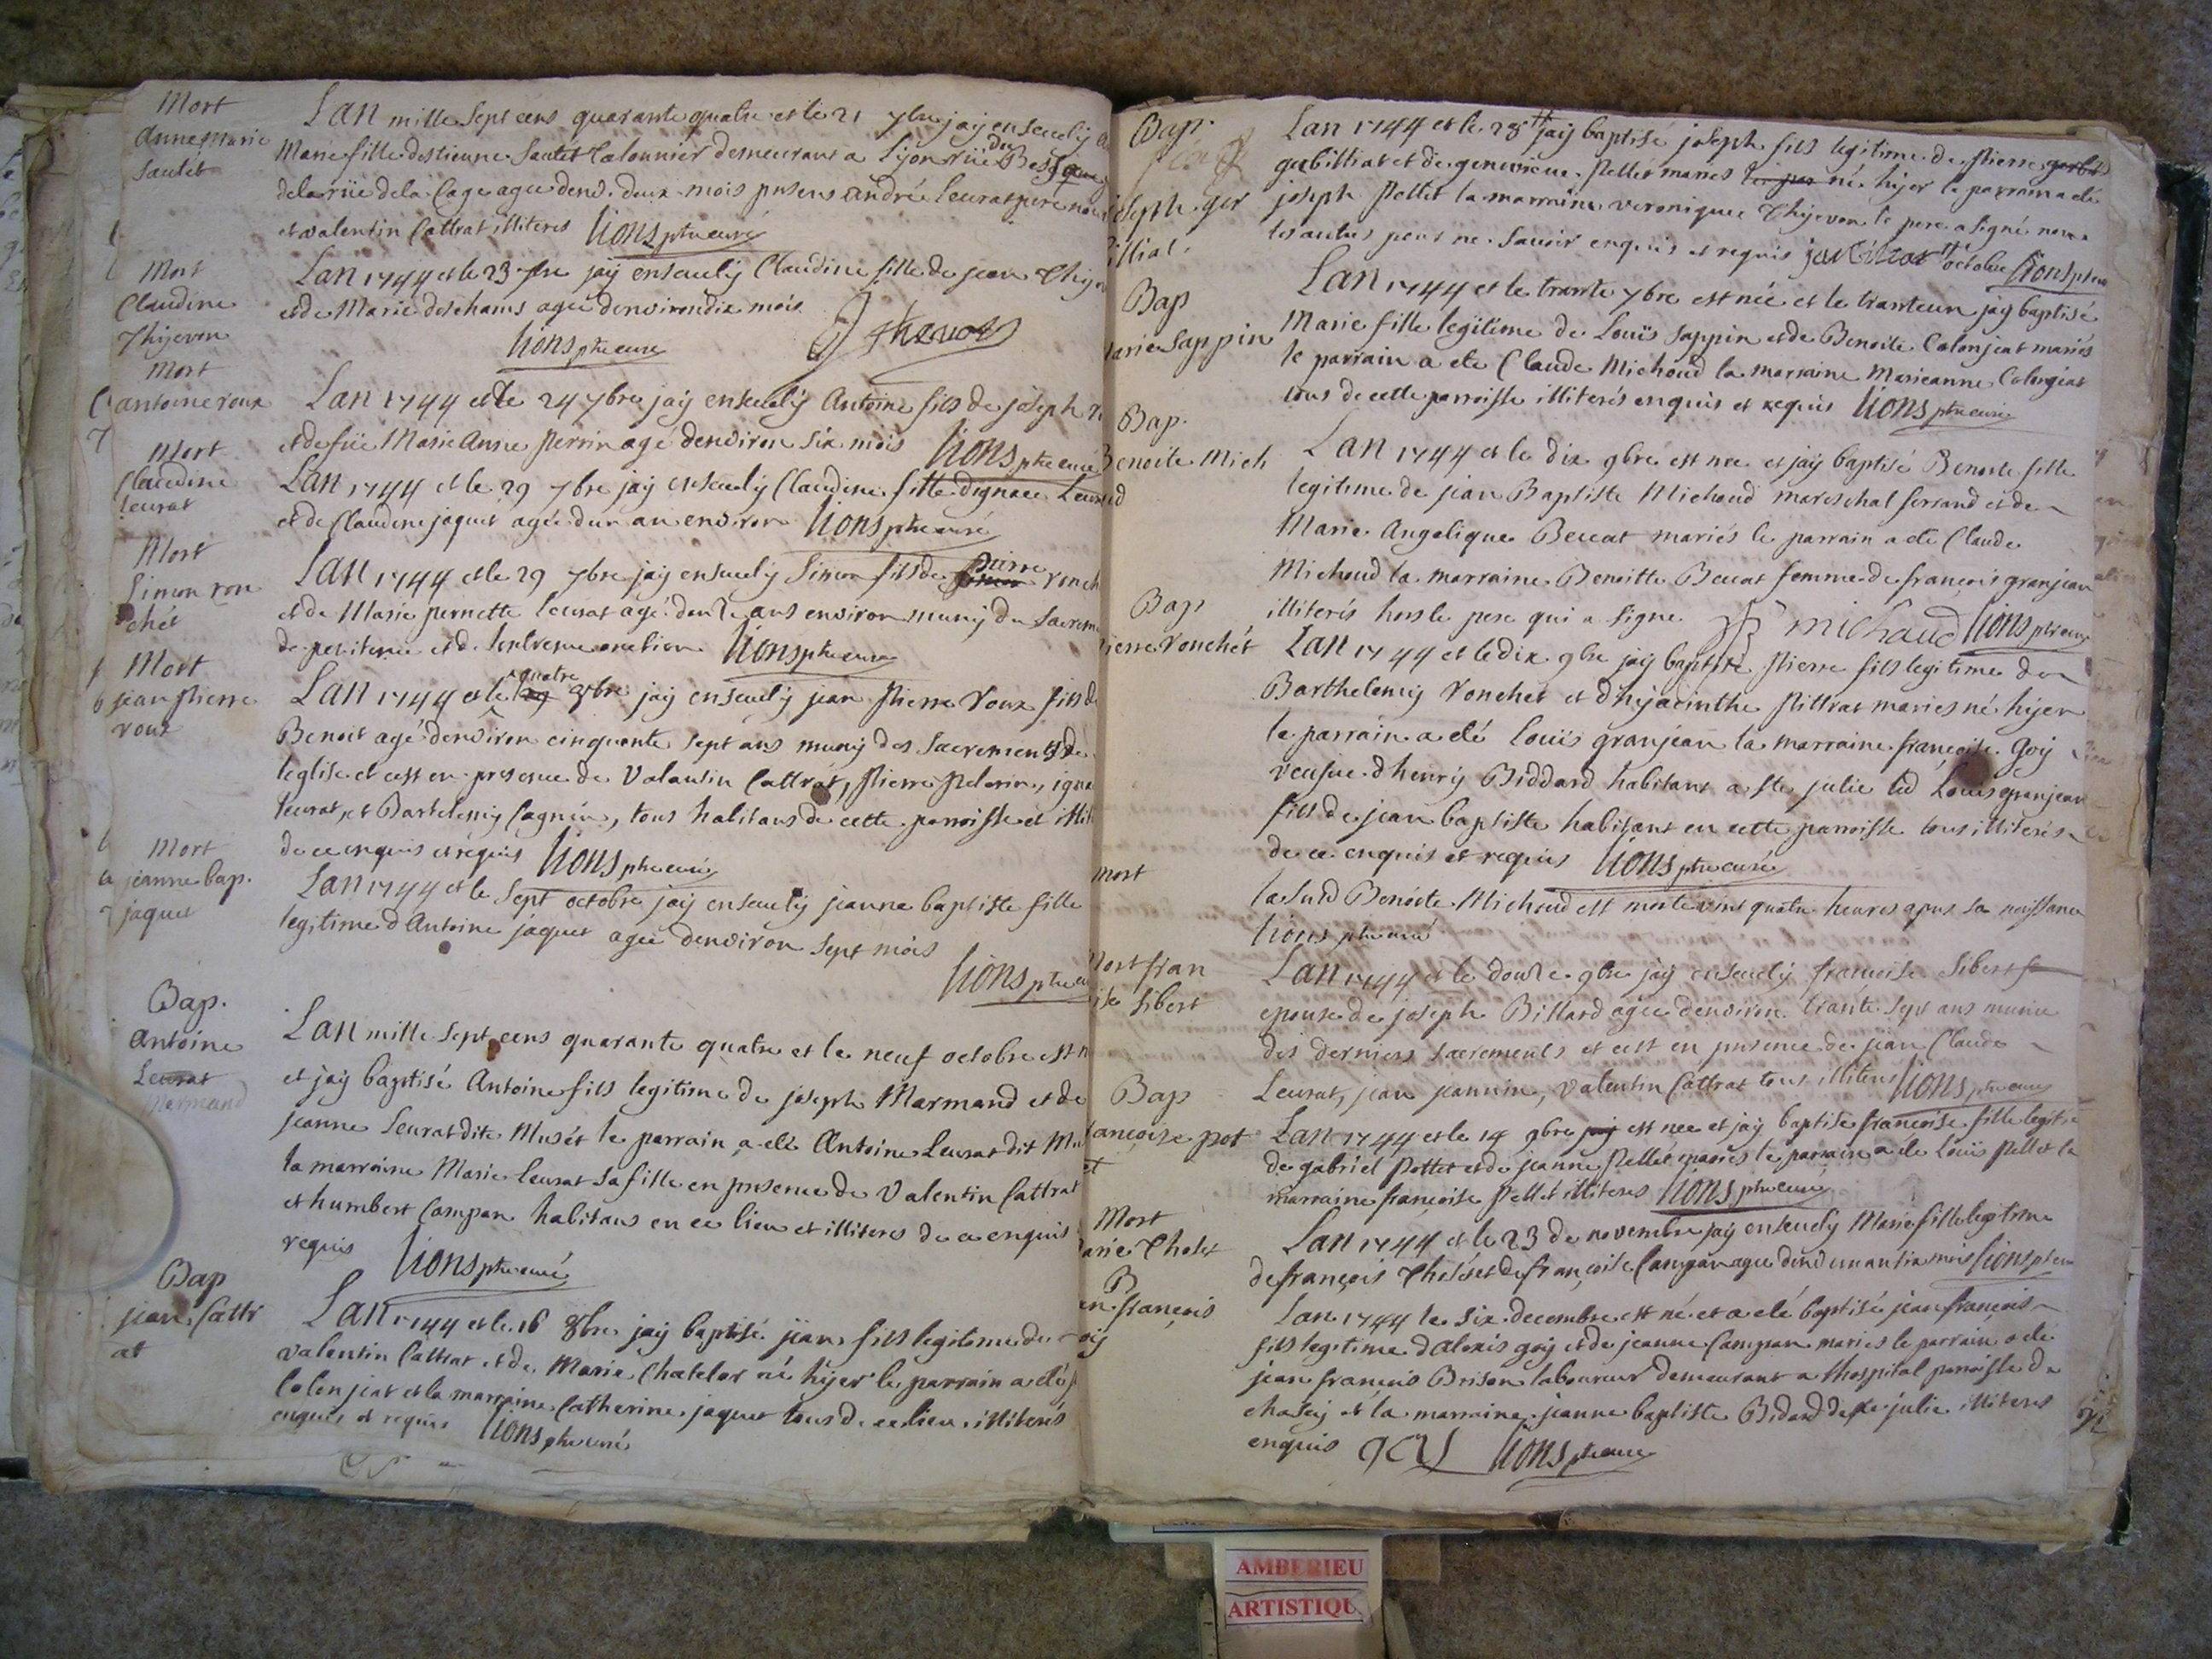 Mort
Anne Marie
Sautet
Lan mille sept cens quarante quatre et le 21 7bre jay enseuely
Marie fille destienne Sautet Talonnier demeurant a Lÿon rüe
de la rüe de la Cage agee denv. deux mois presens André Leurat pere
et valentin Cattrat illiteres Lions ptre curé
Mort
Claudine
Thijevon
Lan 1744 et le 23 7bre jaÿ enseuelÿ Claudine fille de jean
et de Marie deschams agée denviron dix mois
Lions ptre curé
Mort
antoine roux
Lan 1744 et le 24 7bre jaÿ enseuelÿ Antoine fils de joseph
et de füe Marie Anne perrin agé denviron six mois Lions ptre curé
Mort
Claudine
leurat
Lan 1744 et le 29 7bre jaÿ enseuelÿ Claudine fille dignace
et de Claudine jaquet agée dun an environ Lions ptre curé
Mort
Simon ron
chét
Lan 1744 et le 29 7bre jaÿ enseuelÿ Simon fils de pierre
et de Marie pernette leurat agé ans environ munÿ du
de penitence et de lextreme onction Lions ptre curé
Mort
jean pierre
roux
Lan 1744 et le quatre 8bre jaÿ enseuelÿ jean pierre Roux fils
Benoit agé denviron cinquante sept ans munÿ des sacrements de
leglise et cest en presence de Valantin Cattrat, pierre
leurat, et Bartelemÿ Cagnin, tous habitans de cette parroisse et
de ce enquis et requis Lions ptre curé
Mort
jeanne bap.
jaquet
Lan 1744 et le sept octobre jaÿ enseuelÿ jeanne baptiste fille
legitime d Antoine jaquet agée denviron sept mois
Lions ptre
Bap.
Antoine
Leurat
Marmand
Lan mille sept cens quarante quatre et le neuf octobre est
et jaÿ baptisé Antoine fils legitime de joseph Marmand et de
jeanne Leurat dite Musét le parrain a eté Antoine Leurat dit
la marraine Marie leurat sa fille en presence de Valentin Cattrat
et humbert Campan habitans en ce lieu et illiteres de ce enquis
requis Lions ptre curé
Bap
jean Cattr
at
Lan 1744 et le 16 8bre jaÿ baptisé jean fils legitime de
valentin Cattrat et de Marie Chatelar né hijer le parrain a eté
Colonjeat et la marraine Catherine jaquet tous de ce lieu illiterés
enquis et requis Lions ptre curé
Bap.
joseph
Lan 1744 et le 28 jaÿ baptisé joseph fils legitime de pierre
et de genevieve pellét mariés né hijer le parrain a eté
joseph pellet la marraine veronique Thijevon le pere a signé non
les autres pour ne savoir enquis et requis Lions
Bap
Marie Sappin
Lan 1744 et le trante 7bre est née et le tranteun jaÿ baptisé
Marie fille legitime de Loüis Sappin et de Benoite Colonjeat mariés
le parrain a ete Claude Michoud la marraine Marieanne Colonjeat
tous de cette parroisse illiterés enquis et requis Lions ptre curé
Bap.
Benoite Mich
Lan 1744 et le dix 9bre est nee et jaÿ baptisé Benoite fille
legitime de jean Baptiste Michoud mareschal ferrand et de
Marie Angelique Beccat mariés le parrain a eté Claude
Michoud la marraine Benoitte Beccat femme de françois granjean
illiterés hors le pere qui a signe michaud Lions ptre curé
Bap
pierre ronchét
Lan 1744 et le dix 9bre jaÿ baptisé pierre fils legitime de
Barthelemÿ ronchet et dhÿacinthe pittrat mariés né hijer
le parrain a eté loüis granjean la marraine françoise Goÿ
veufve dhenrÿ Biddard habitant a ste julie led Louis granjean
fils de jean baptiste habitant en cette parroisse tous illiterés
de ce enquis et requis Lions ptre curé
mort
la sud Benoite Michoud est morte vint quatre heures apres sa naissance
Lions ptre curé
Mort fran
Sibert
Lan 1744 et le douze 9bre jaÿ enseuelÿ françoise Sibert
epouse de joseph Billard agée denviron trante sept ans munie
des derniers sacrements et cest en presence de jean Claude
Leurat, jean jeannin, Valentin Cattrat tous illiteres Lions ptre curé
Bap
françoise pot
et
Lan 1744 et le 14 9bre est nee et jaÿ baptisé françoise fille legit
de gabriel pottet et de jeanne pellet mariés le parrain a ete Loüis pellet la
marraine françoise pellét illiteres Lions ptre curé
Mort
Marie Tholet
Lan 1744 et le 23 de novembre jaÿ enseuelÿ Marie fille legitime
de françois et de françoise Campan agee denv un an six mois Lions ptre
B
françois
goÿ
Lan 1744 le six decembre est né et a eté baptisé jean françois
fils legitime dalexis goÿ et de jeanne Campan mariés le parrain a eté
jean francois Brison laboureur demeurant a lhospital parroisse de
chazeÿ et la marraine jeanne baptiste Bidard de ste julie illiteres
enquis Lions ptre curé
AMBERIEU
ARTISTIQU